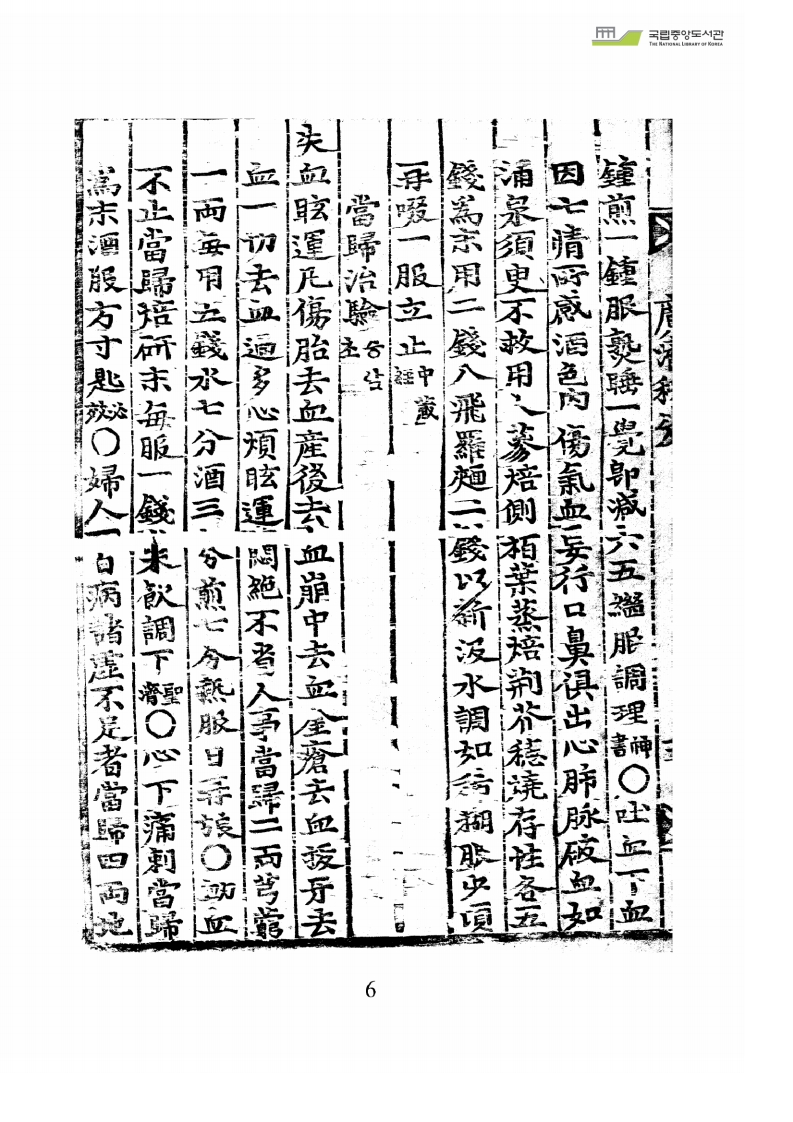 국립중앙도서관
THE NATIONAL LIBRARY OF KOREA
廣濟秘笈
鍾煎一鍾服熟睡一覺卽减六五繼服調理神書○吐血下血
因七情所感酒色內傷氣血妄行口鼻俱出心肺脉破血如
涌泉須臾不救用人蔘焙側栢葉蒸焙荆芥穗燒存性各五
錢爲末用二錢入飛羅麵二錢以新汲水調如稀糊服少頃
再啜一服立止中藏經
當歸治驗승암초
失血眩運凡傷胎去血産後去血崩中去血金瘡去血拔牙去
血一切去血過多心煩眩運悶絶不省人事當歸二兩芎藭
一兩每用五錢水七分酒三分煎七分熱服日再 ○衂血
不止當歸焙硏末每服一錢米飮調下聖濟○心下痛刺當歸
爲末酒服方寸匙必效○婦人百病諸虛不足者當歸四兩地
6